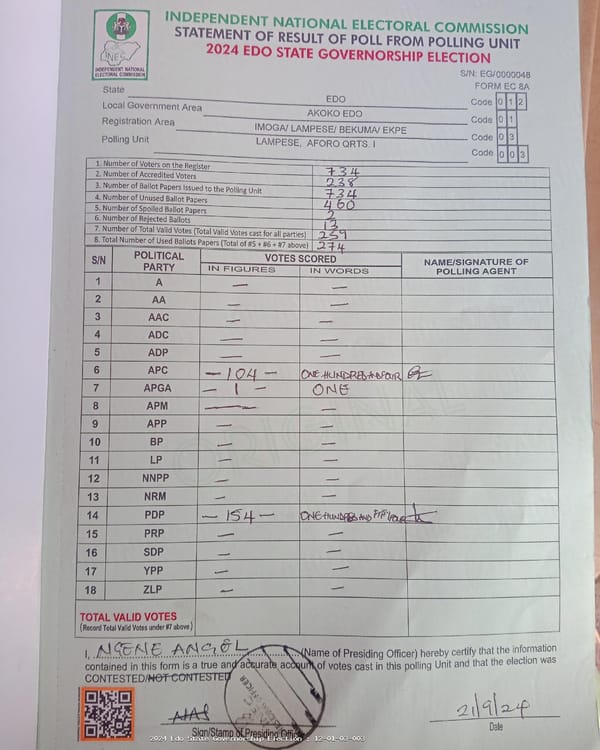 INDEPENDENT NATIONAL ELECTORAL COMMISSION
STATEMENT OF RESULT OF POLL FROM POLLING UNIT
2024 EDO STATE GOVERNORSHIP ELECTION
INEC
INDEPENDENT NATIONAL
ELECTORAL COMMISSION
S/N: EG/0000048
FORM EC 8A
State EDO Code 0 1 2
Local Government Area AKOKO EDO Code 0 1
Registration Area IMOGA/ LAMPESE/ BEKUMA/ EKPE Code 0 3
Polling Unit LAMPESE, AFORO QRTS. I Code 0 0 3
1. Number of Voters on the Register 734
2. Number of Accredited Voters 238
3. Number of Ballot Papers Issued to the Polling Unit 734
4. Number of Unused Ballot Papers 460
5. Number of Spoiled Ballot Papers 2
6. Number of Rejected Ballots 13
7. Number of Total Valid Votes (Total Valid Votes cast for all parties) 259
8. Total Number of Used Ballots Papers (Total of #5 + #6 + #7 above) 274
S/N POLITICAL PARTY VOTES SCORED NAME/SIGNATURE OF POLLING AGENT
IN FIGURES IN WORDS
1 A — —
2 AA — —
3 AAC — —
4 ADC — —
5 ADP — —
6 APC – 104 – ONE HUNDRED AND FOUR
7 APGA – 1 – ONE
8 APM — —
9 APP — —
10 BP — —
11 LP — —
12 NNPP — —
13 NRM — —
14 PDP – 154 – ONE HUNDRED AND FIFTY FOUR
15 PRP — —
16 SDP — —
17 YPP — —
18 ZLP — —
TOTAL VALID VOTES
(Record Total Valid Votes under #7 above)
I, NGENE ANGEL (Name of Presiding Officer) hereby certify that the information
contained in this form is a true and accurate account of votes cast in this polling Unit and that the election was
CONTESTED/NOT CONTESTED
21/9/24
Sign/Stamp of Presiding Officer
Date
2024 Edo State Governorship Election : 12-01-03-003